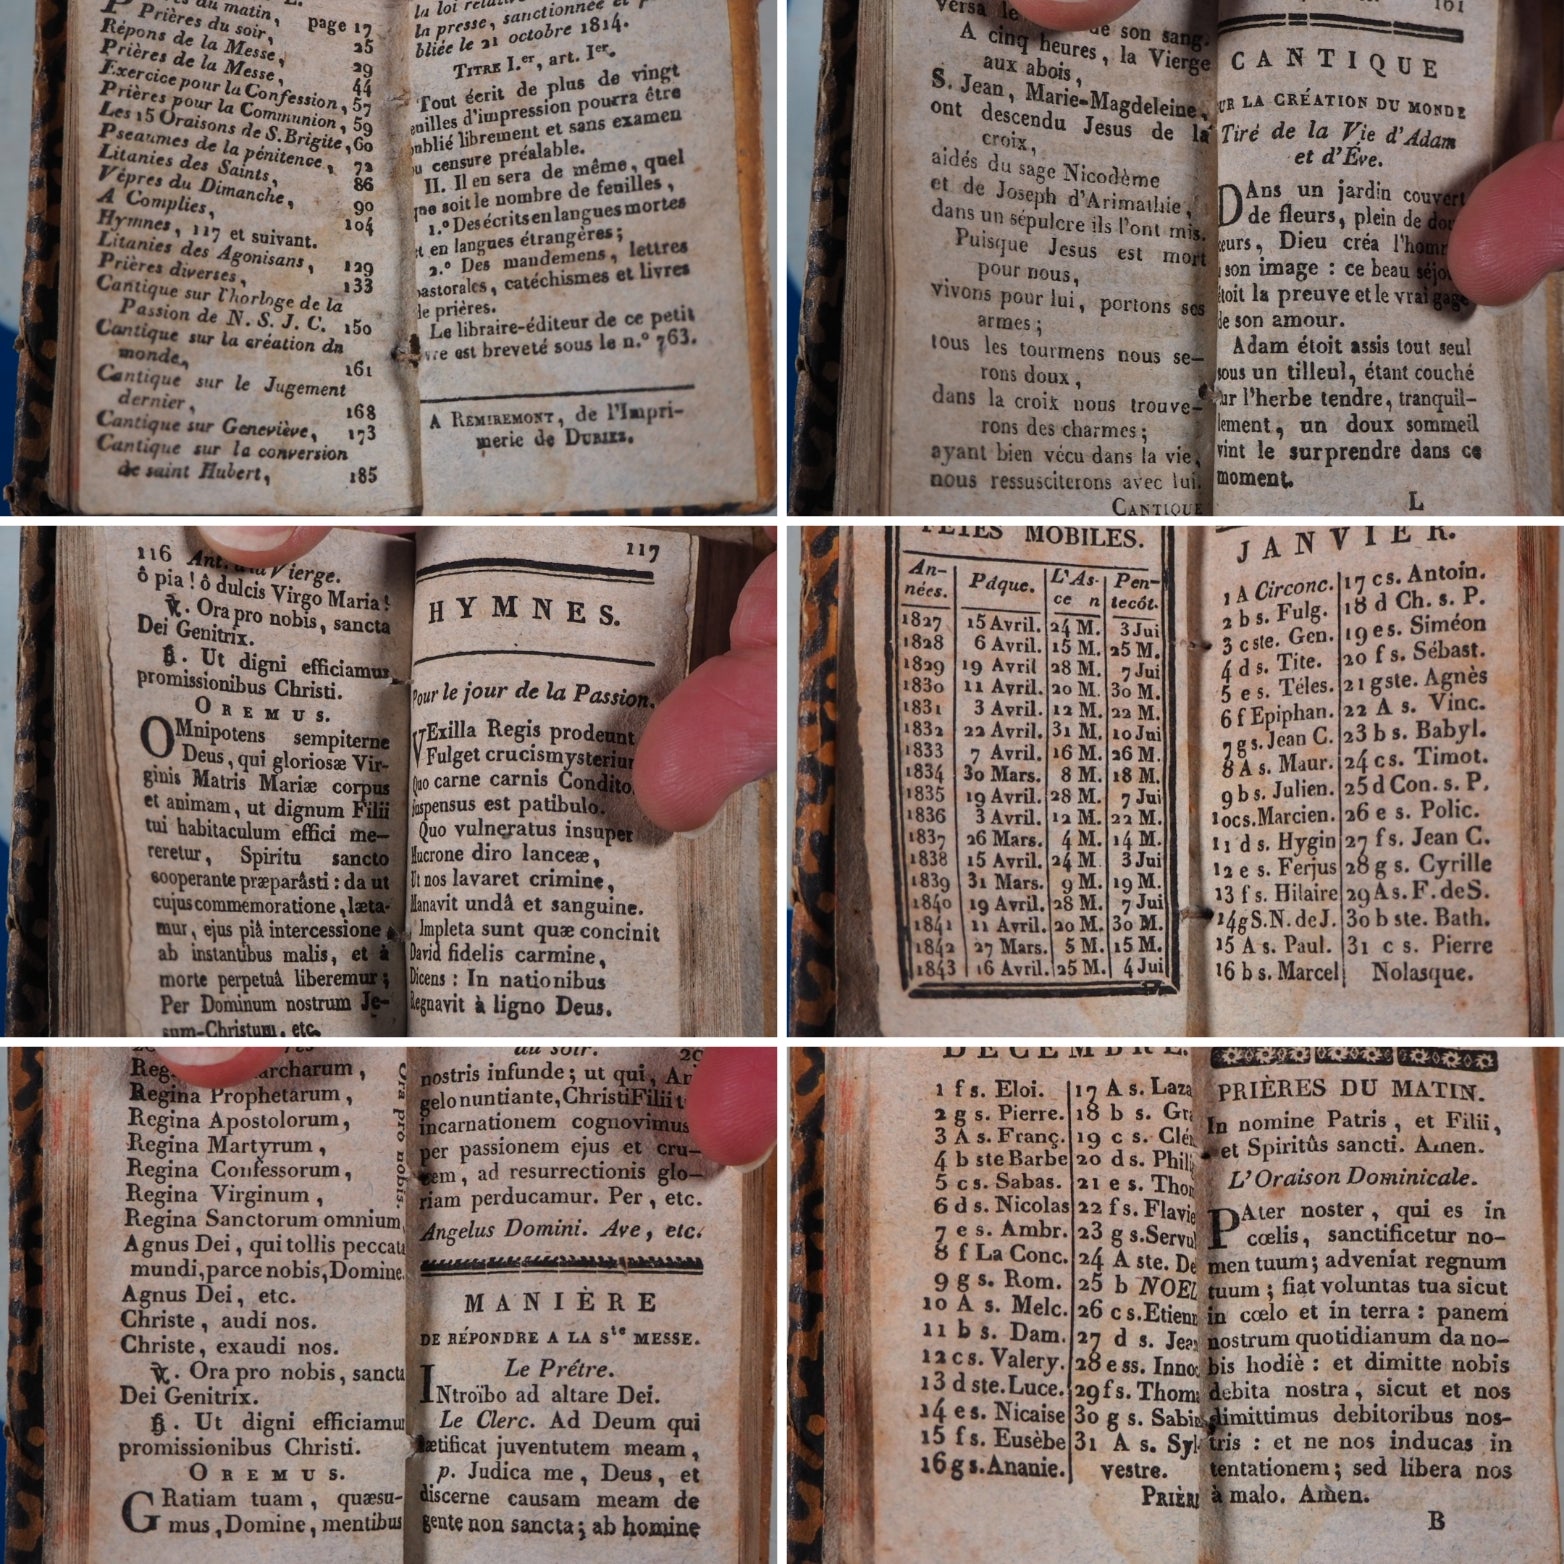 du matin, page 17
Prières du soir, 25
Répons de la Messe, 29
Prières de la Messe, 44
Exercice pour la Confession, 57
Prières pour la Communion, 59
Les 15 Oraisons de S. Brigite, 60
Pseaumes de la pénitence, 72
Litanies des Saints, 86
Vêpres du Dimanche, 90
A Complies, 104
Hymnes, 117 et suivant.
Litanies des Agonisans, 129
Prières diverses, 133
Cantique sur l'horloge de la
Passion de N. S. J. C. 150
Cantique sur la création du
monde, 161
Cantique sur le Jugement
dernier, 168
Cantique sur Geneviève, 173
Cantique sur la conversion
de saint Hubert, 185
la loi
la presse, sanctionnée et
bliée le 21 octobre 1814.
TITRE I.er, art. Ier.
Tout écrit de plus de vingt
euilles d'impression pourra être
ublié librement et sans examen
u censure préalable.
II. Il en sera de même, quel
que soit le nombre de feuilles,
1.° Des écrits en langues mortes
t en langues étrangères;
2.° Des mandemens, lettres
pastorales, catéchismes et livres
de prières.
Le libraire-éditeur de ce petit
vre est breveté sous le n.° 763.
A REMIREMONT, de l'Impri-
merie de DUBIEZ.
versa le de son sang.
A cinq heures, la Vierge
aux abois,
S. Jean, Marie-Magdeleine,
ont descendu Jesus de la
croix,
aidés du sage Nicodème
et de Joseph d'Arimathie,
dans un sépulcre ils l'ont mis.
Puisque Jesus est mort
pour nous,
vivons pour lui, portons ses
armes;
tous les tourmens nous se-
rons doux,
dans la croix nous trouve-
rons des charmes;
ayant bien vécu dans la vie,
nous ressusciterons avec lui.
CANTIQUE
161
CANTIQUE
UR LA CRÉATION DU MONDE
Tiré de la Vie d'Adam
et d'Éve.
DAns un jardin couvert
de fleurs, plein de dou
ceurs, Dieu créa l'homm
son image : ce beau séjou
étoit la preuve et le vrai gage
de son amour.
Adam étoit assis tout seul
sous un tilleul, étant couché
ur l'herbe tendre, tranquil-
lement, un doux sommeil
vint le surprendre dans ce
moment.
L
116 Ant. à la Vierge.
ô pia ! ô dulcis Virgo Maria !
℣. Ora pro nobis, sancta
Dei Genitrix.
℟. Ut digni efficiamur
promissionibus Christi.
OREMUS.
OMnipotens sempiterne
Deus, qui gloriosæ Vir-
ginis Matris Mariæ corpus
et animam, ut dignum Filii
tui habitaculum effici me-
reretur, Spiritu sancto
cooperante præparâsti : da ut
cujus commemoratione, læta-
mur, ejus piâ intercessione
ab instantibus malis, et à
morte perpetuâ liberemur;
Per Dominum nostrum Je-
sum-Christum, etc.
117
HYMNES.
Pour le jour de la Passion.
VExilla Regis prodeunt
Fulget crucis mysterium
Quo carne carnis Condito
suspensus est patibulo.
Quo vulneratus insuper
Mucrone diro lanceæ,
Ut nos lavaret crimine,
Manavit undâ et sanguine.
Impleta sunt quæ concinit
David fidelis carmine,
Dicens : In nationibus
Regnavit à ligno Deus.
FÊTES MOBILES.
An-nées. | Pâque. | L'As-ce n | Pen-tecôt.
1827 | 15 Avril. | 24 M. | 3 Jui
1828 | 6 Avril. | 15 M. | 25 M.
1829 | 19 Avril | 28 M. | 7 Jui
1830 | 11 Avril. | 20 M. | 30 M.
1831 | 3 Avril. | 12 M. | 22 M.
1832 | 22 Avril. | 31 M. | 10 Jui
1833 | 7 Avril. | 16 M. | 26 M.
1834 | 30 Mars. | 8 M. | 18 M.
1835 | 19 Avril. | 28 M. | 7 Jui
1836 | 3 Avril. | 12 M. | 22 M.
1837 | 26 Mars. | 4 M. | 14 M.
1838 | 15 Avril. | 24 M. | 3 Jui
1839 | 31 Mars. | 9 M. | 19 M.
1840 | 19 Avril. | 28 M. | 7 Jui
1841 | 11 Avril. | 20 M. | 30 M.
1842 | 27 Mars. | 5 M. | 15 M.
1843 | 16 Avril. | 25 M. | 4 Jui
JANVIER.
1 A Circonc. | 17 c s. Antoin.
2 b s. Fulg. | 18 d Ch. s. P.
3 c ste. Gen. | 19 e s. Siméon
4 d s. Tite. | 20 f s. Sébast.
5 e s. Téles. | 21 g ste. Agnès
6 f Epiphan. | 22 A s. Vinc.
7 g s. Jean C. | 23 b s. Babyl.
8 A s. Maur. | 24 c s. Timot.
9 b s. Julien. | 25 d Con. s. P.
10 c s. Marcien. | 26 e s. Polic.
11 d s. Hygin | 27 f s. Jean C.
12 e s. Ferjus | 28 g s. Cyrille
13 f s. Hilaire | 29 A s. F. de S.
14 g S. N. de J. | 30 b ste. Bath.
15 A s. Paul. | 31 c s. Pierre
16 b s. Marcel | Nolasque.
Regina Patriarcharum,
Regina Prophetarum,
Regina Apostolorum,
Regina Martyrum,
Regina Confessorum,
Regina Virginum,
Regina Sanctorum omnium,
Ora pro nobis.
Agnus Dei, qui tollis peccata
mundi, parce nobis, Domine.
Agnus Dei, etc.
Christe, audi nos.
Christe, exaudi nos.
℣. Ora pro nobis, sancta
Dei Genitrix.
℟. Ut digni efficiamu
promissionibus Christi.
OREMUS.
GRatiam tuam, quæsu-
mus, Domine, mentibus
du soir. 29
nostris infunde; ut qui, An
gelo nuntiante, Christi Filii t
incarnationem cognovimus
per passionem ejus et cru-
cem, ad resurrectionis glo-
riam perducamur. Per, etc.
Angelus Domini. Ave, etc.
MANIÈRE
DE RÉPONDRE A LA Ste MESSE.
Le Prétre.
INtroïbo ad altare Dei.
Le Clerc. Ad Deum qui
lætificat juventutem meam,
p. Judica me, Deus, et
discerne causam meam de
gente non sancta; ab homine
DECEMBRE.
1 f s. Eloi. | 17 A s. Laza
2 g s. Pierre. | 18 b s. Gr
3 A s. Franç. | 19 c s. Clé
4 b ste Barbe | 20 d s. Phil
5 c s. Sabas. | 21 e s. Tho
6 d s. Nicolas | 22 f s. Flavie
7 e s. Ambr. | 23 g s. Servu
8 f La Conc. | 24 A ste. De
9 g s. Rom. | 25 b NOEL
10 A s. Melc. | 26 c s. Etien
11 b s. Dam. | 27 d s. Jea
12 c s. Valery. | 28 e ss. Inno
13 d ste. Luce. | 29 f s. Thom
14 e s. Nicaise | 30 g s. Sabi
15 f s. Eusèbe | 31 A s. Syl
16 g s. Ananie. | vestre.
PRIÈR
PRIÈRES DU MATIN.
In nomine Patris, et Filii,
et Spiritûs sancti. Amen.
L'Oraison Dominicale.
PAter noster, qui es in
cœlis, sanctificetur no-
men tuum; adveniat regnum
tuum; fiat voluntas tua sicut
in cœlo et in terra : panem
nostrum quotidianum da no-
bis hodiè : et dimitte nobis
debita nostra, sicut et nos
dimittimus debitoribus nos-
tris : et ne nos inducas in
tentationem; sed libera nos
à malo. Amen.
B